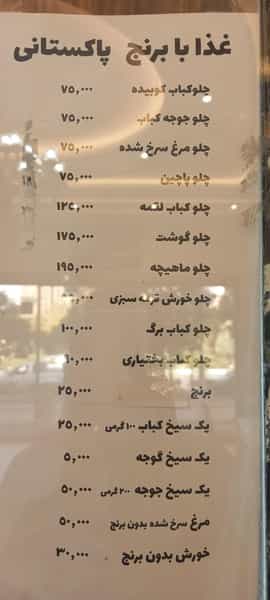 غذا با برنج پاکستانی
چلوکباب کوبیده ۷۵,۰۰۰
چلو جوجه کباب ۷۵,۰۰۰
چلو مرغ سرخ شده ۷۵,۰۰۰
چلو پاچین ۷۵,۰۰۰
چلو کباب لقمه ۱۲۵,۰۰۰
چلو گوشت ۱۷۵,۰۰۰
چلو ماهیچه ۱۹۵,۰۰۰
چلو خورش قرمه سبزی
چلو کباب برگ ۱۰۰,۰۰۰
چلو کباب بختیاری
برنج ۲۵,۰۰۰
یک سیخ کباب ۱۰۰ گرمی ۲۵,۰۰۰
یک سیخ گوجه ۵,۰۰۰
یک سیخ جوجه ۲۰۰ گرمی ۵۰,۰۰۰
مرغ سرخ شده بدون برنج ۵۰,۰۰۰
خورش بدون برنج ۳۰,۰۰۰